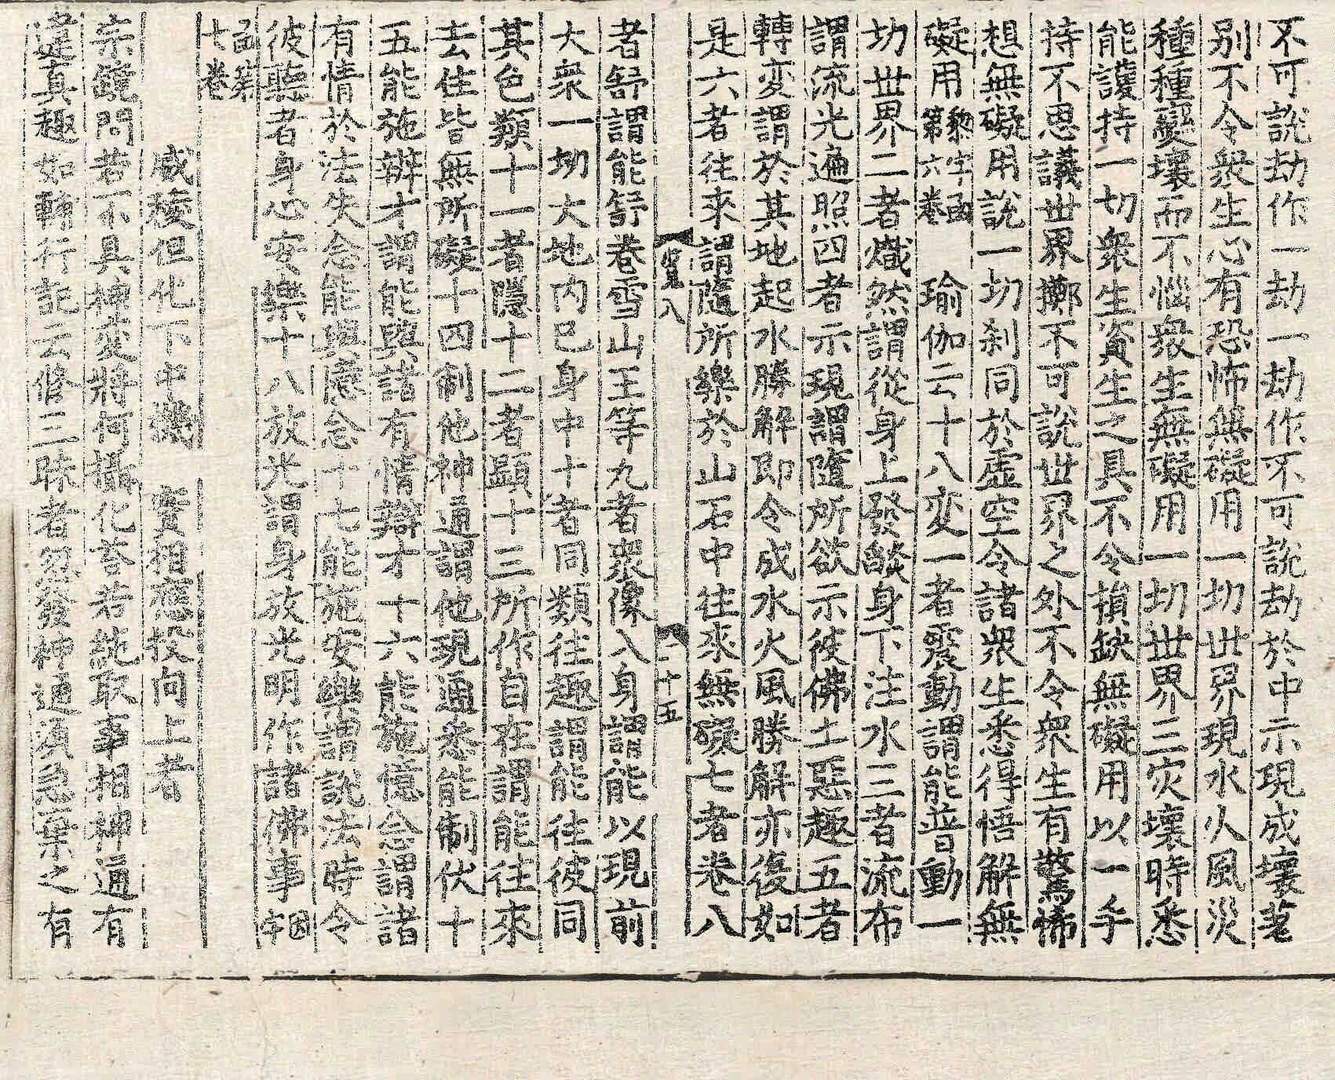 不可説劫作一劫一劫作不可説劫於中示現成壞差
别不令衆生心有恐怖無礙用一切世界現水火風災
種種變壞而不惱衆生無礙用一切世界三灾壞時悉
能護持一切衆生資生之具不令損缺無礙用以一手
持不思議世界擲不可說世界之外不令衆生有驚怖
想無礙用説一切刹同於虛空令諸衆生悉得悟解無
礙用黎字函第六卷 瑜伽云十八変一者震動謂能普動一
切世界二者熾然謂從身上發燄身下注水三者流布
謂流光遍照四者示現謂隨所欲示彼佛土惡趣五者
轉変謂於其地起水勝解即令成水火風勝解亦復如
是六者往來謂隨所樂於山石中往來無礙七者卷八
八 二十五
者舒謂能舒卷雪山王等九者衆像入身謂能以現前
大衆一切大地内己身中十者同類往趣謂能往彼同
其色類十一者隱十二者顯十三所作自在謂能往來
去住皆無所礙十四制他神通謂他現通悉能制伏十
五能施辯才謂能與諸有情辯才十六能施憶念謂諸
有情於法失念能與憶念十七能施安樂謂說法時令
彼聽者身心安樂十八放光謂身放光明作諸佛事因字
函第七卷
威稜但化下中機 實相應投向上者
宗鏡問若不具神変將何攝化荅若純取事相神通有
違真趣如輔行記云修三昧者忽發神通湏急棄之有